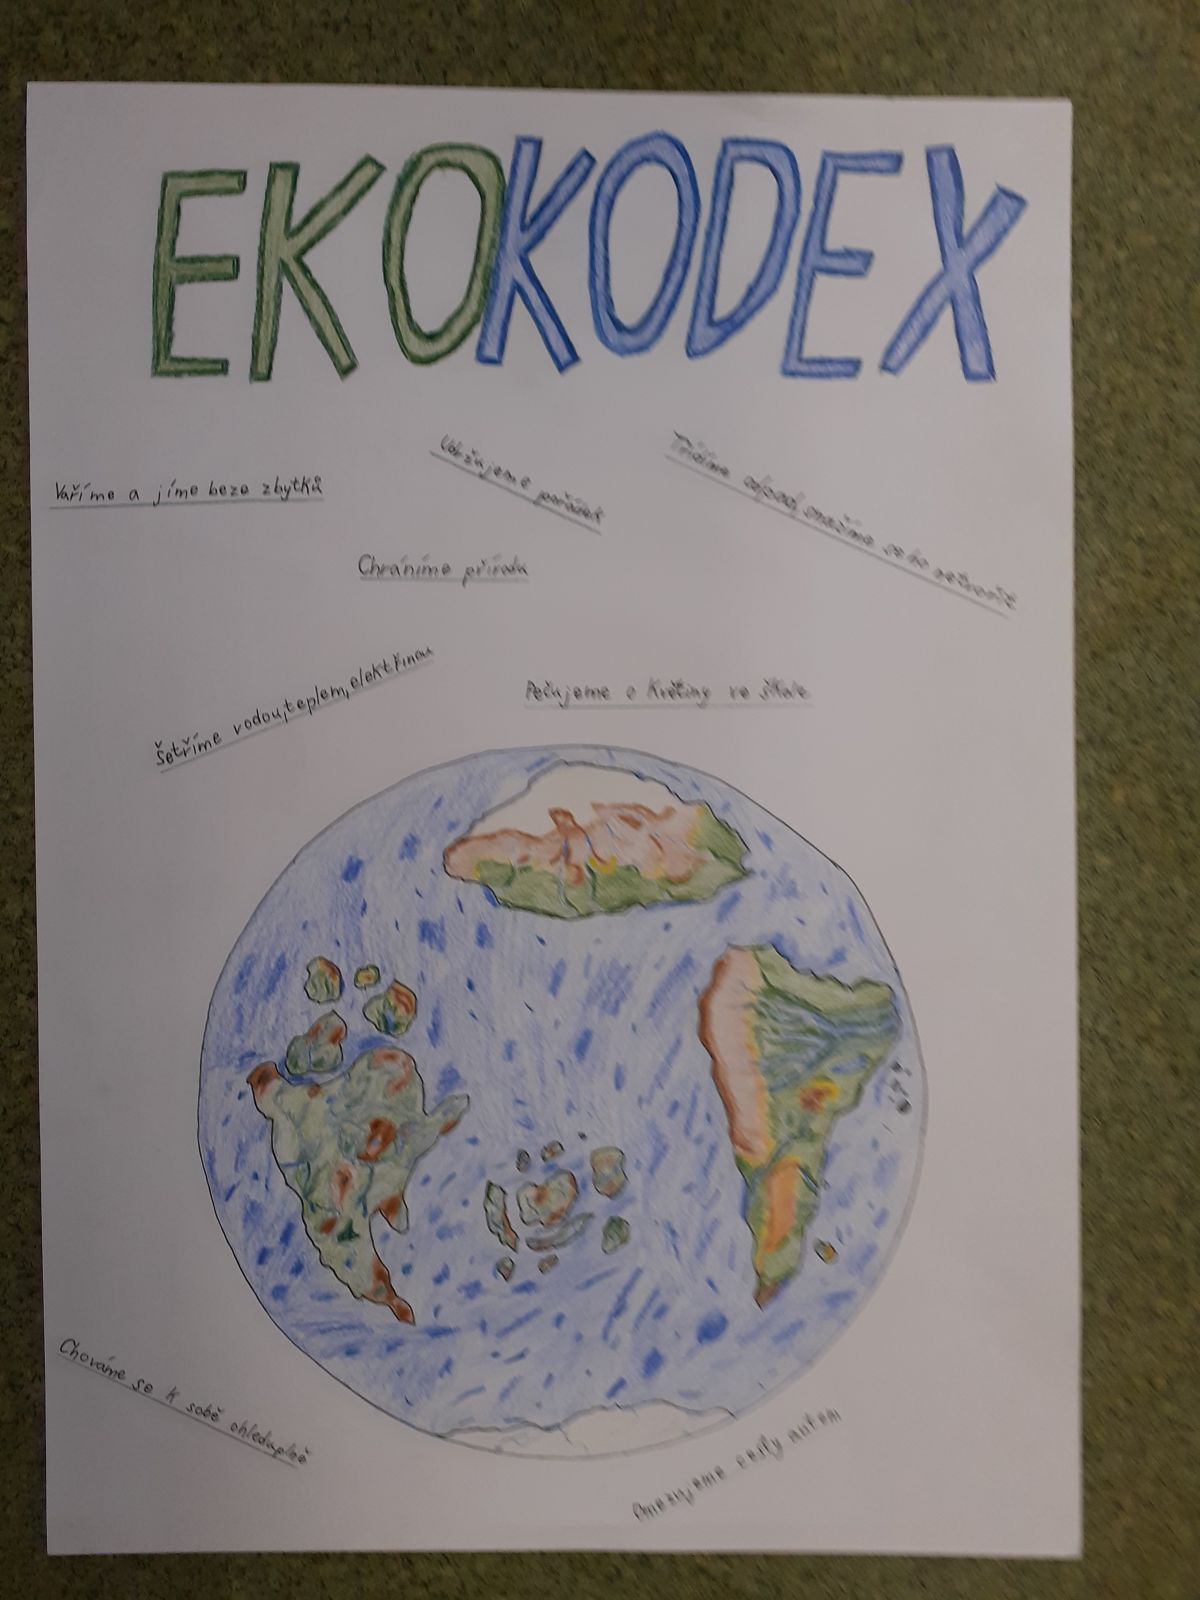 EKOKODEX
Vaříme a jíme beze zbytků
Udržujeme pořádek
Třídíme odpad, snažíme se ho netvořit
Chráníme přírodu
Šetříme vodou, teplem, elektřinou
Pečujeme o Květiny ve škole
Chováme se k sobě ohleduplně
Omezujeme cesty autem